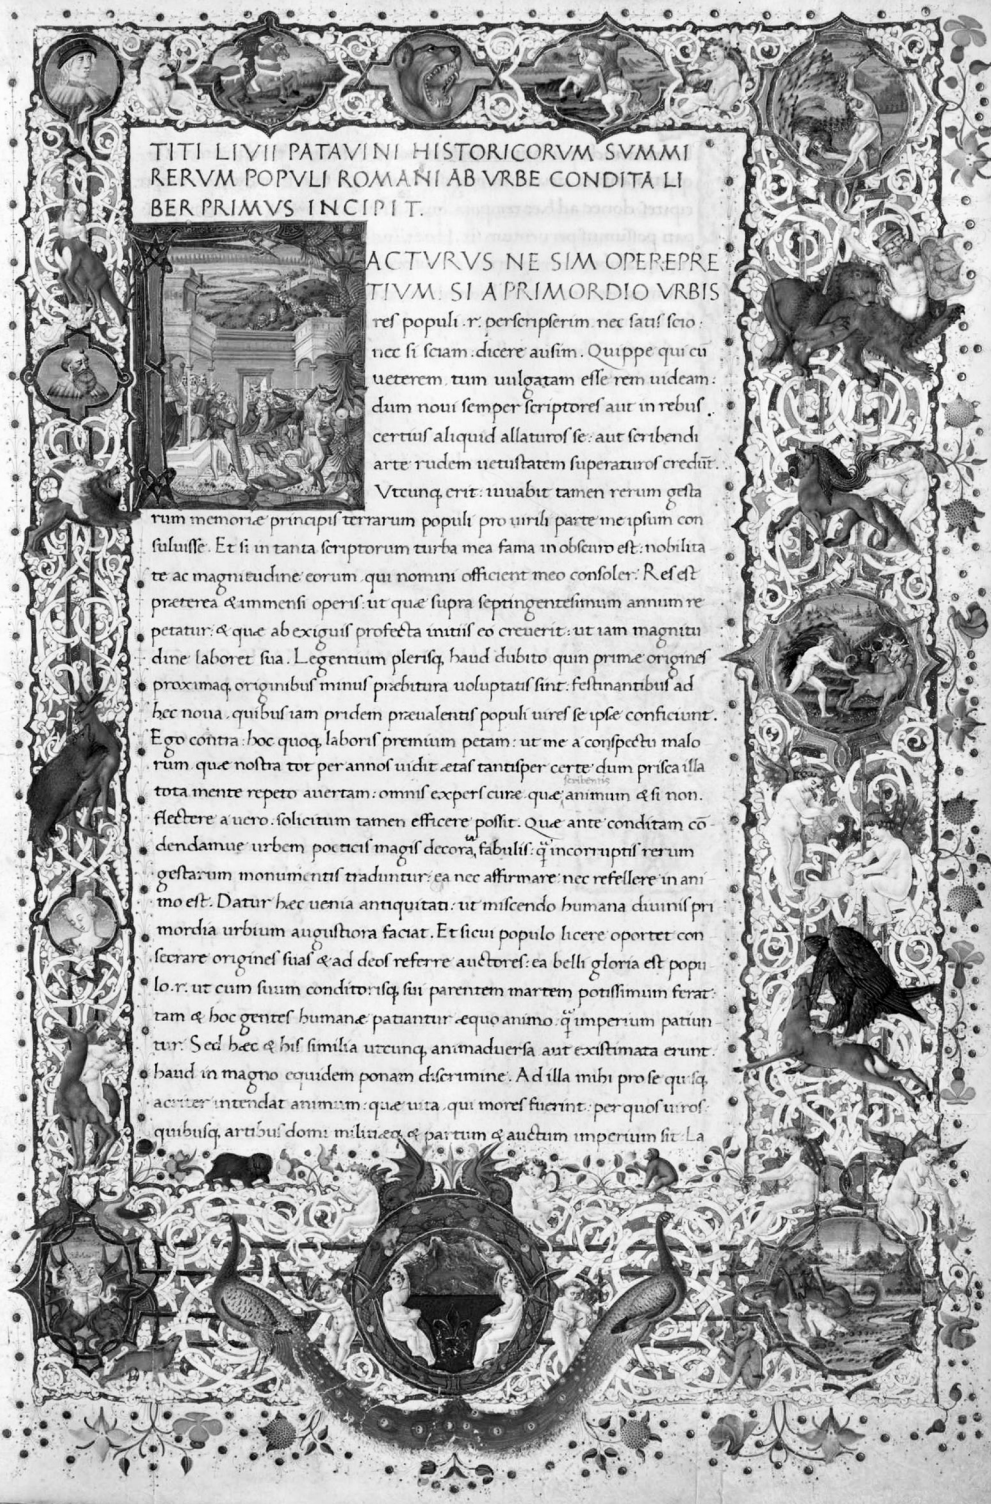 TITI LIVII PATAVINI HISTORICORVM SVMMI
RERVM POPVLI ROMANI AB VRBE CONDITA LI
BER PRIMVS INCIPIT.
FACTVRVS NE SIM OPEREPRE
TIVM. SI A PRIMORDIO VRBIS
res populi .r. perscripserim. nec satis scio:
nec si sciam. dicere ausim. Quippe qui cũ
veterem. tum vulgatam esse rem videam:
dum novi semper scriptores aut in rebus.
certius aliquid allaturos se: aut scribendi
arte rudem vetustatem superaturos credũt.
Vtcunq, erit: iuvabit tamen rerum gesta
rum memoriæ principis terrarum populi pro virili parte me ipsum con
suluisse. Et si in tanta scriptorum turba mea fama in obscuro est: nobilita
te ac magnitudine eorum. qui nomini officient meo consoler. Res est
præterea & immensi operis: ut quæ supra septingentesimum annum re
petatur: & quæ ab exiguis profecta initiis eo creverit: ut iam magnitu
dine laboret sua. Legentium plerisq, haud dubito quin primæ origines
proximaq, originibus minus præbitura voluptatis sint: festinantibus ad
hec nova. quibus iam pridem prævalentis populi vires se ipsæ conficiunt.
Ego contra: hoc quoq, laboris premium petam: ut me a conspectu malo
rum. quæ nostra tot per annos vidit ætas tantisper certe dum prisca illa
scribentis
tota mente repeto avertam: omnis expers curæ. quæ animum & si non.
flectere a vero. solicitum tamen efficere possit. Quæ ante conditam cō-
dendamve urbem poeticis magis decora, fabulis: q̃ incorruptis rerum
gestarum monumentis traduntur: ea nec affirmare: nec refellere in ani
mo est. Datur hæc venia antiquitati: ut miscendo humana divinis pri
mordia urbium augustiora faciat. Et si cui populo licere oportet con
secrare origines suas & ad deos referre auctores: ea belli gloria est popu
lo .r. ut cum suum conditorisq, sui parentem martem potissimum ferat:
tam & hoc gentes humanæ patiantur æquo animo. q̃ imperium patiun
tur. Sed hæc & his similia utcunq, animadversa aut existimata erunt.
haud in magno equidem ponam discrimine. Ad illa mihi pro se quisq,
acriter intendat animum: quæ vita. qui mores fuerint: per quos viros
quibusq, artibus domi militiæq, & partum & auctum imperium sit. La